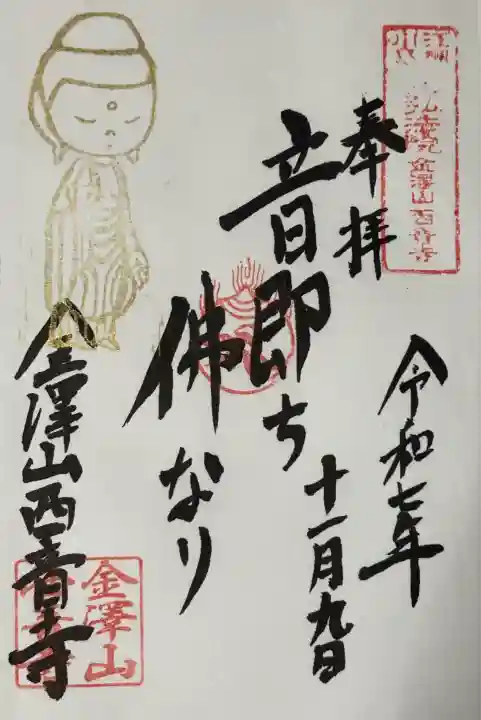 奉拝
令和七年
十一月九日
音即ち
佛なり
金澤山西音寺
金澤山西音寺
金澤山
西音寺